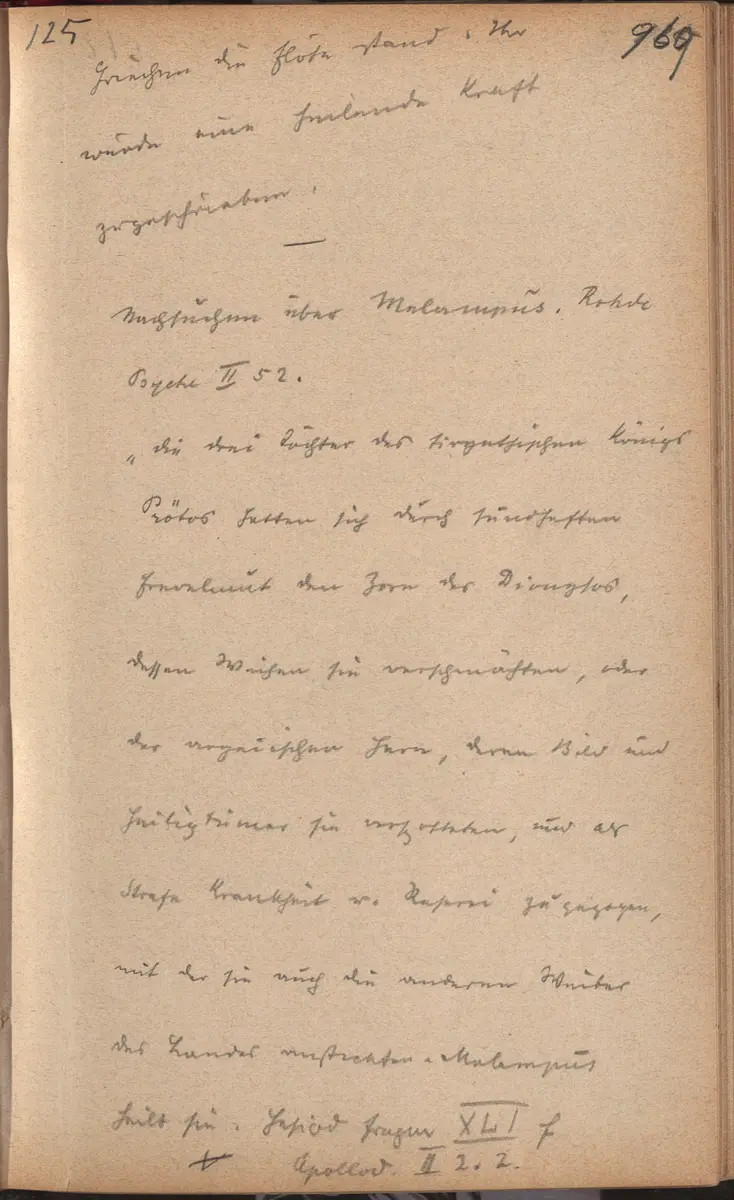 125
969
Griechen die Flöte stand. Ihr
wurde eine heilende Kraft
zugeschrieben.
Nachsuchen über Melampus. Rohde
Psyche II 52.
„die drei Töchter des tirynthischen Königs
Prötos hatten sich durch sündhaften
Frevelmut den Zorn des Dionysos,
dessen Weihen sie verschmähten, oder
der argeiischen Hera, deren Bild und
Heiligtümer sie verspotteten, und als
Strafe Krankheit u. Raserei zugezogen,
mit der sie auch die anderen Weiber
des Landes ansteckten. Melampus
heilt sie. Hesiod fragm XLI f
Apollod. II 2.2.